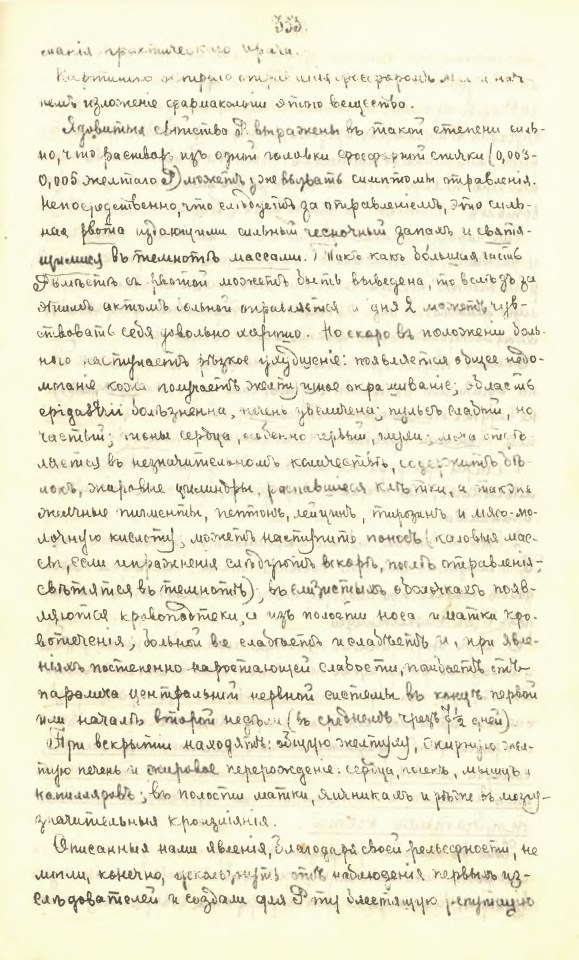 333.
манія практическаго врача.
Картиною остраго отравленія фосфоромъ мы и нач-
немъ изложеніе фармакологіи этого вещества.
Ядовитыя свойства P. выражены въ такой степени силь-
но, что растворъ изъ одной головки фосфорной спички (0,003-
0,005 желтаго P) можетъ уже вызвать симптомы отравленія.
Непосредственно, что слѣдуетъ за отравленіемъ, это силь-
ная рвота издающими сильный чесночный запахъ и святя-
щимися въ темнотѣ массами. Такъ какъ большая часть
P вмѣстѣ съ рвотой можетъ быть выведена, то вслѣдъ за
этимъ актомъ больной оправляется и дня 2 можетъ чув-
ствовать себя довольно хорошо. Но скоро въ положеніи боль-
ного наступаетъ рѣзкое ухудшеніе: появляется общее недо-
моганіе кожа получаетъ желтушное окрашиваніе; область
epigastrii болѣзненна, печень увеличена; пульсъ слабый, но
частый; тоны сердца, особенно первый, глухи; моча отдѣ-
ляется въ незначительномъ количествѣ, содержитъ бѣ-
локъ, жировые цилиндры, распавшіеся клѣтки, а также
желчные пигменты, пептонъ, лейцинъ, тирозинъ и мясо-мо-
лочную кислоту; можетъ наступить поносъ (каловыя мас-
сы, если испражненія слѣдуютъ вскорѣ послѣ отравленія,
свѣтятся въ темнотѣ); въ слизистыхъ оболочкахъ появ-
ляются кровоподтеки, а изъ полости носа и матки кро-
вотеченія; больной все слабѣетъ и слабѣетъ и, при явле-
ніяхъ постепенно наростающей слабости, погибаетъ отъ
паралича центральной нервной системы въ концѣ первой
или началѣ второй недѣли (въ среднемъ чрезъ 7½ дней).
При вскрытіи находятъ: общую желтуху, жирную жел-
тую печень и жировое перерожденіе: сердца, почекъ, мышцъ и
капилляровъ; въ полости матки, яичникахъ и рѣже въ мозгу-
значительныя кровоизліянія.
Описанныя нами явленія, благодаря своей рельефности, не
могли, конечно, ускользнуть отъ наблюденія первыхъ из-
слѣдователей и создали для P ту блестящую репутацію